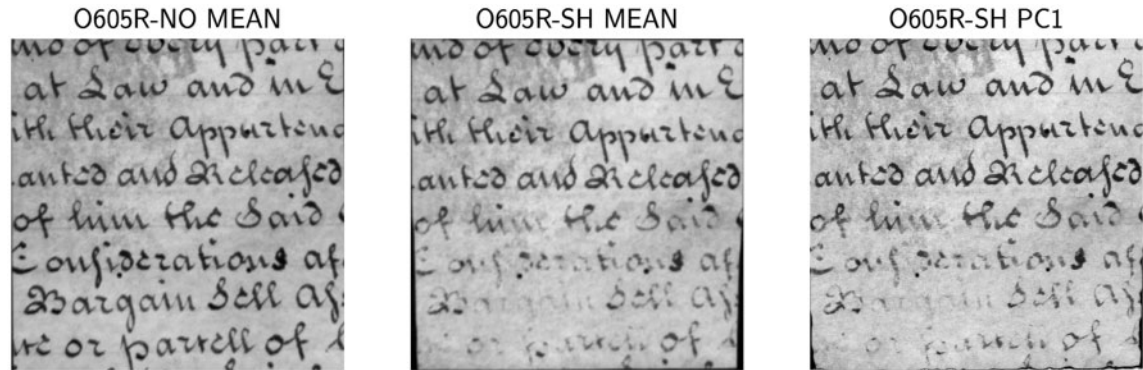 O605R-NO MEAN
of every part
at Law and in E
ith their Appurtenc
anted and Released
of him the Said
Considerations af
Bargain Sell As
te or parcell of
O605R-SH MEAN
of every part
at Law and in E
ith their Appurtenc
anted and Released
of him the Said
Considerations af
Bargain Sell As
or parcell of
O605R-SH PC1
of every part
at Law and in E
ith their Appurtenc
anted and Released
of him the Said
Considerations af
Bargain Sell As
or parcell of